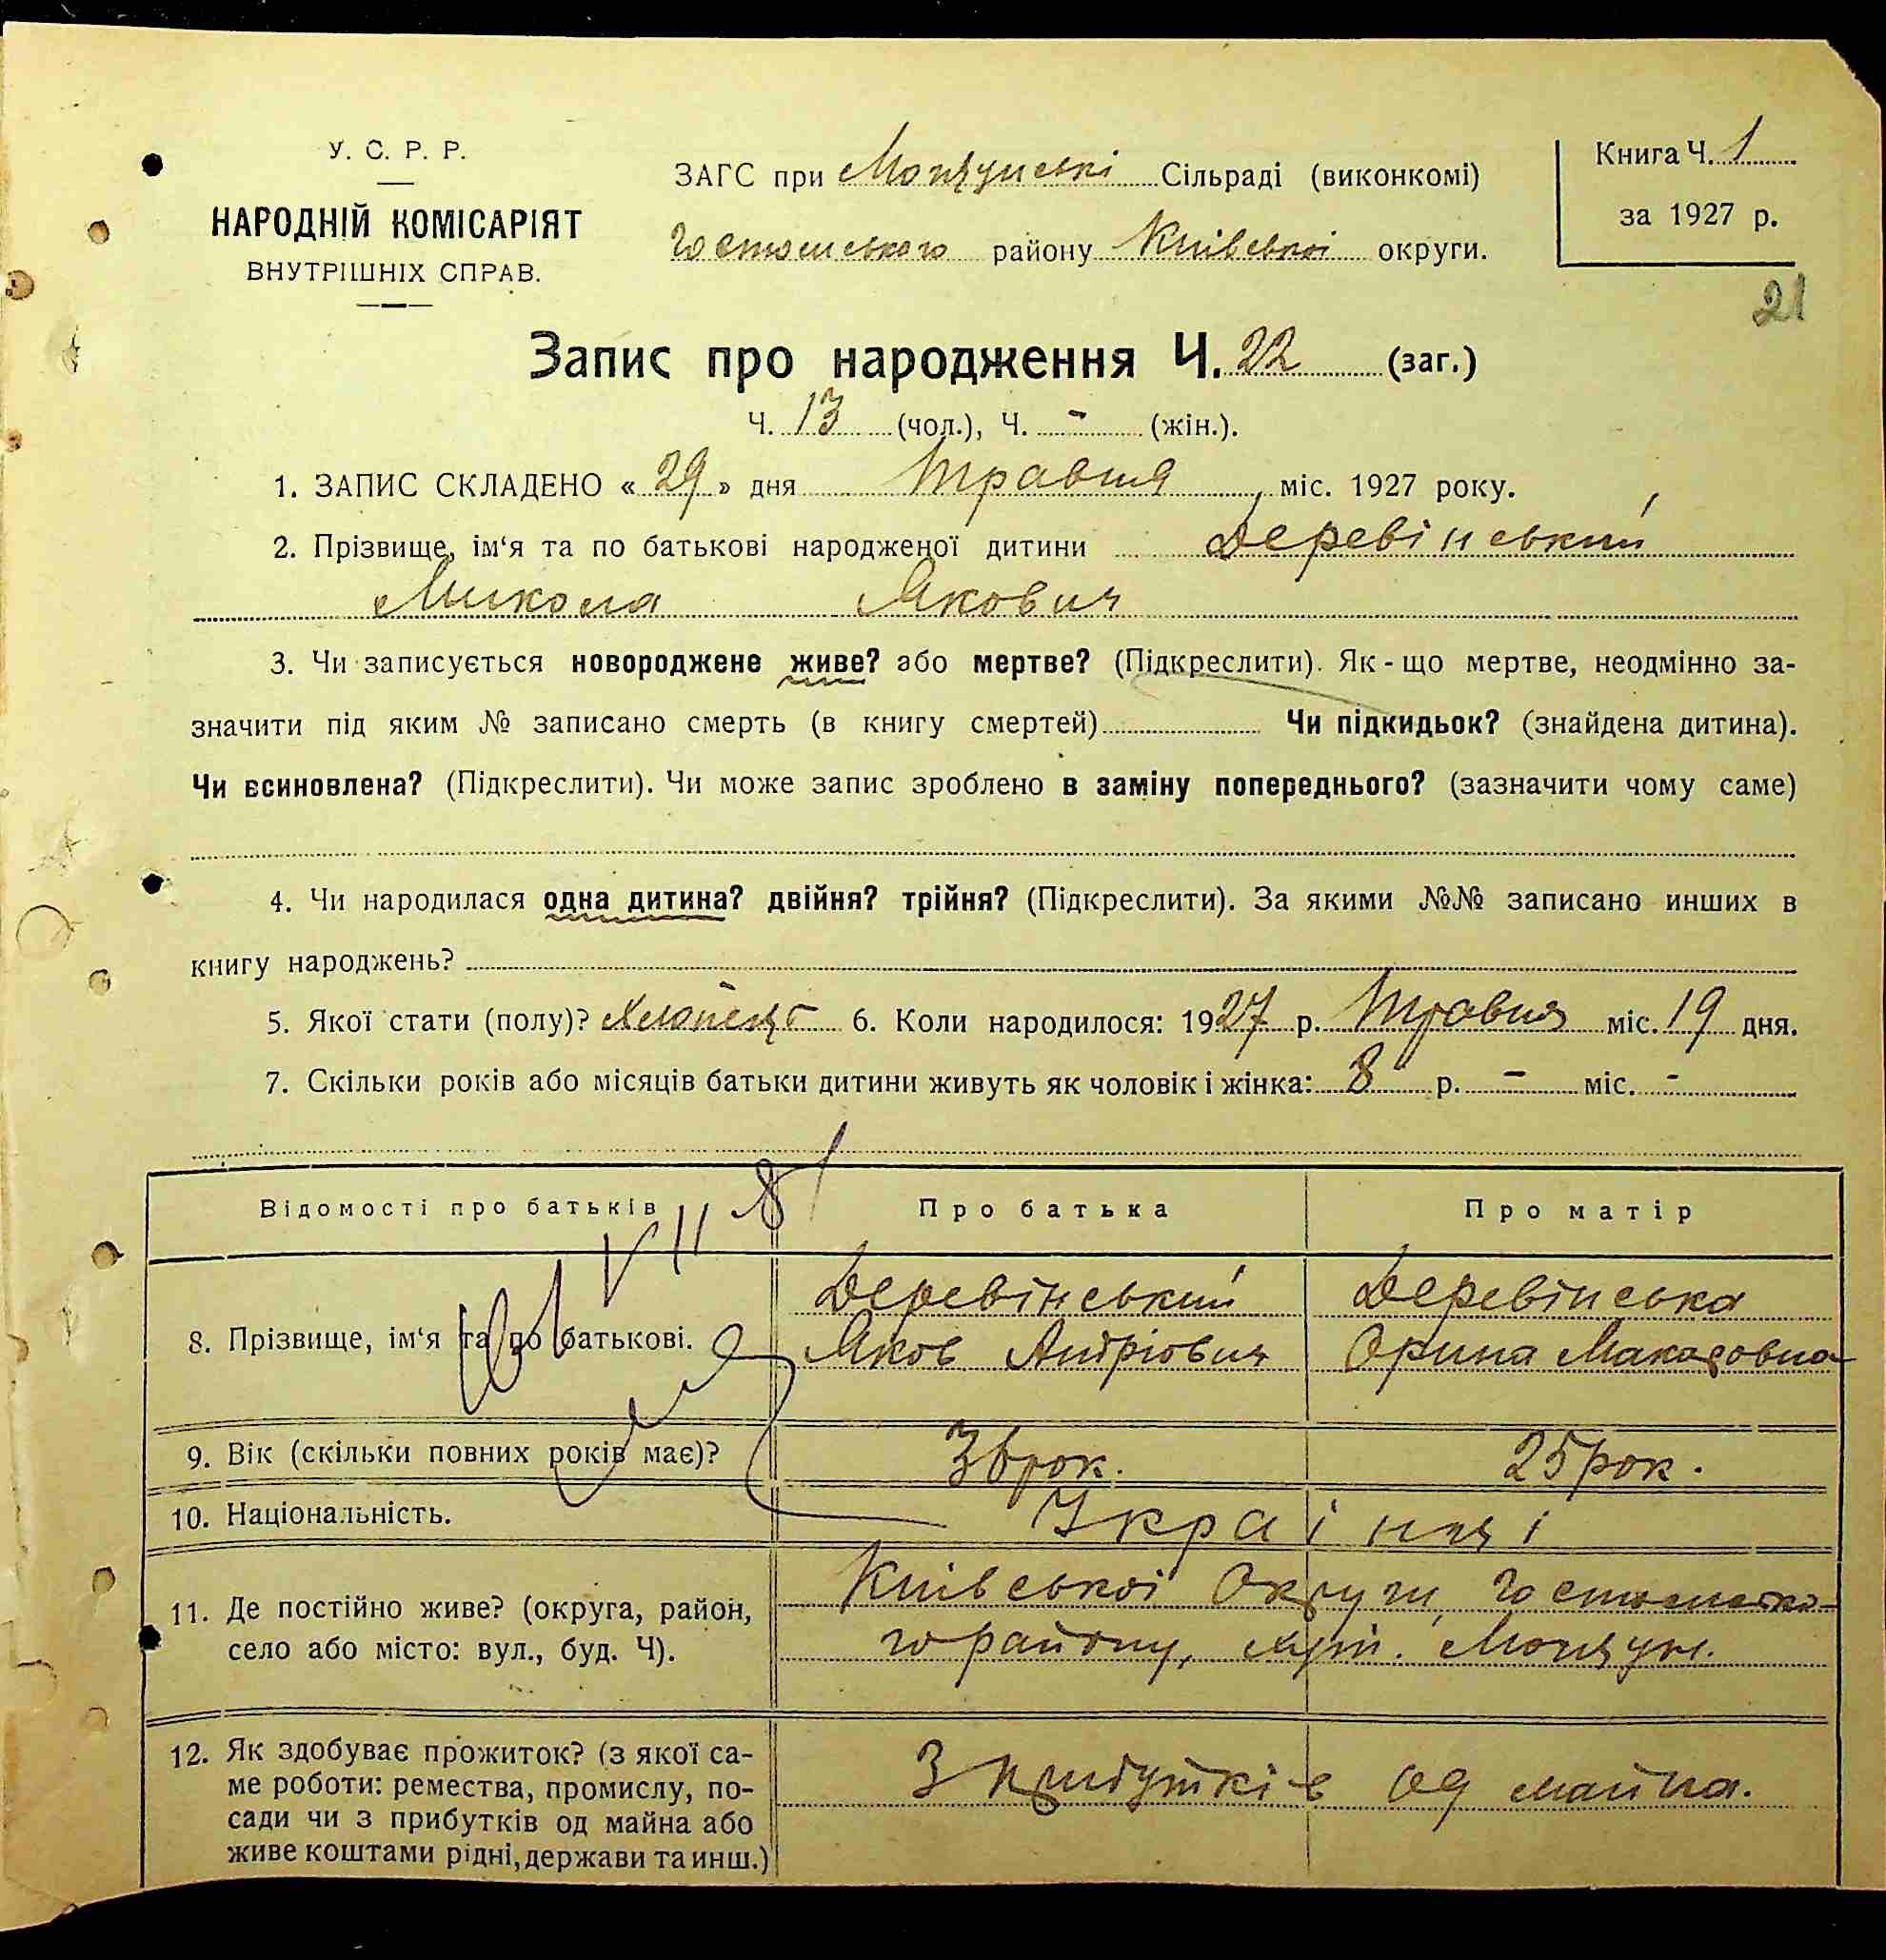 У. С. Р. Р.
НАРОДНІЙ КОМІСАРІЯТ
ВНУТРІШНІХ СПРАВ.
ЗАГС при Мощунські Сільраді (виконкомі)
Гостомського району Київської округи.
Книга Ч. 1
за 1927 р.
21
Запис про народження Ч. 22 (заг.)
Ч. 13 (чол.), Ч. - (жін.).
1. ЗАПИС СКЛАДЕНО « 29 » дня Травня міс. 1927 року.
2. Прізвище, ім‘я та по батькові народженої дитини Деревінський
Микола Якович
3. Чи записується новороджене живе? або мертве? (Підкреслити). Як - що мертве, неодмінно за-
значити під яким № записано смерть (в книгу смертей) Чи підкидьок? (знайдена дитина).
Чи всиновлена? (Підкреслити). Чи може запис зроблено в заміну попереднього? (зазначити чому саме)
4. Чи народилася одна дитина? двійня? трійня? (Підкреслити). За якими №№ записано инших в
книгу народжень?
5. Якої стати (полу)? 6. Коли народилося: 1927 р. Травня міс. 19 дня.
7. Скільки років або місяців батьки дитини живуть як чоловік і жінка: 8 р. - міс. -
Відомості про батьків Про батька Про матір
8. Прізвище, ім‘я та по батькові.
Деревінський Деревінська
Яков Андріович Орина Макаровна
9. Вік (скільки повних років має)? 36 рок. 25 рок.
10. Національність. Украінці
11. Де постійно живе? (округа, район,
село або місто: вул., буд. Ч).
Київської Округи, Гостомсько-
го району, хут. Мощун.
12. Як здобуває прожиток? (з якої са-
ме роботи: ремества, промислу, по-
сади чи з прибутків од майна або
живе коштами рідні, держави та инш.)
З прибутків од майна.